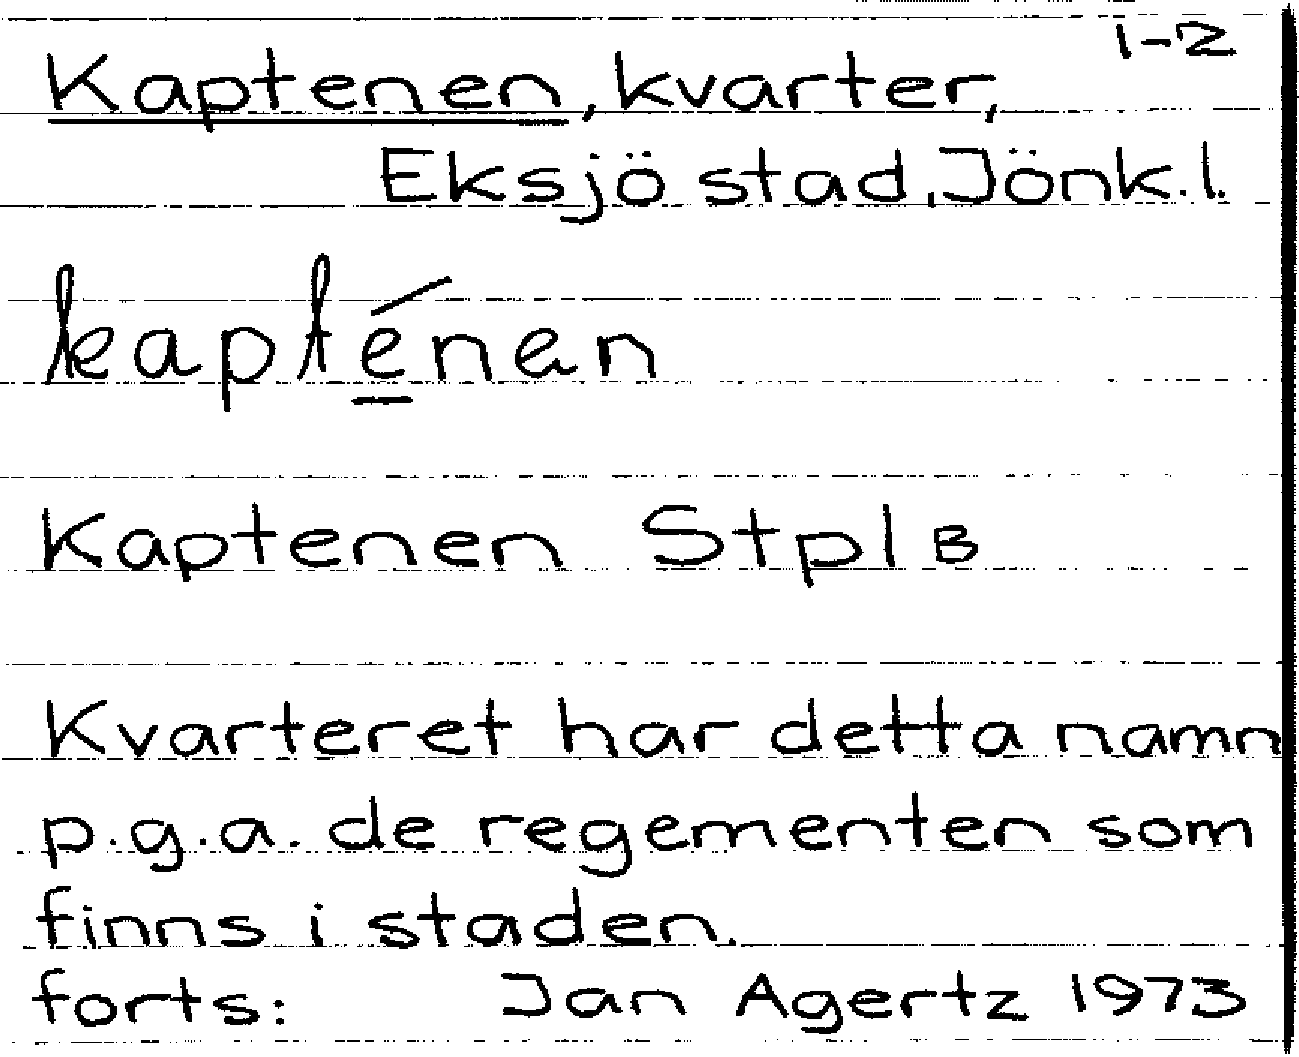 1-2
Kaptenen, kvarter,
Eksjö stad, Jönk.l.
kapténen
Kaptenen Stpl B
Kvarteret har detta namn
p.g.a. de regementen som
finns i staden.
forts: Jan Agertz 1973